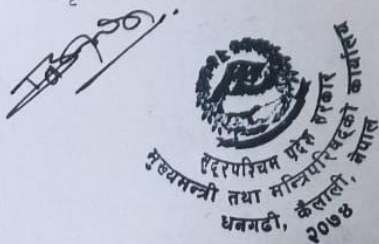 सुदूरपश्चिम प्रदेश सरकार
मुख्यमन्त्री तथा मन्त्रिपरिषद्को कार्यालय
धनगढी, कैलाली, नेपाल
२०७४